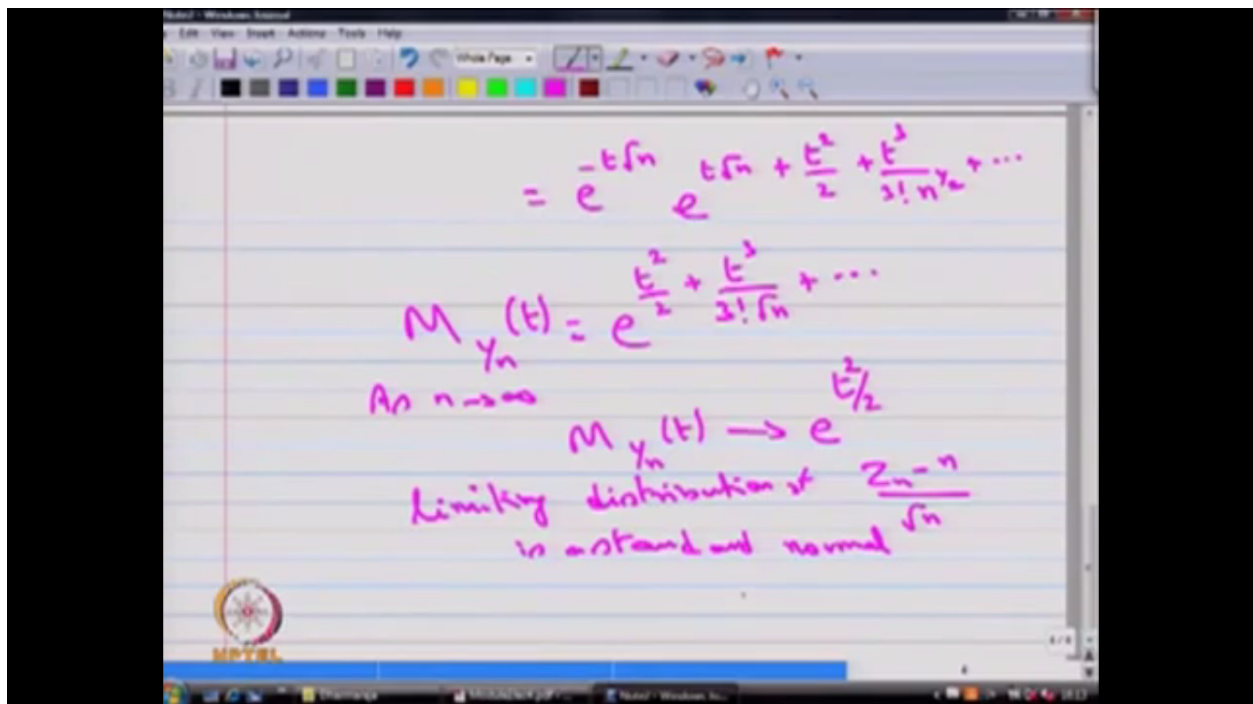 Note2 - Windows Journal
Edit View Insert Actions Tools Help
Whole Page
= e^{-t√n} e^{t√n + t²/2 + t³/(3! n^{1/2}) + ...}
M_{Yn}(t) = e^{t²/2 + t³/(3! √n) + ...}
As n → ∞
M_{Yn}(t) → e^{t²/2}
Limiting distribution of (Zn - n)/√n
is a standard normal
NPTEL
Note2 - Windows Jou...